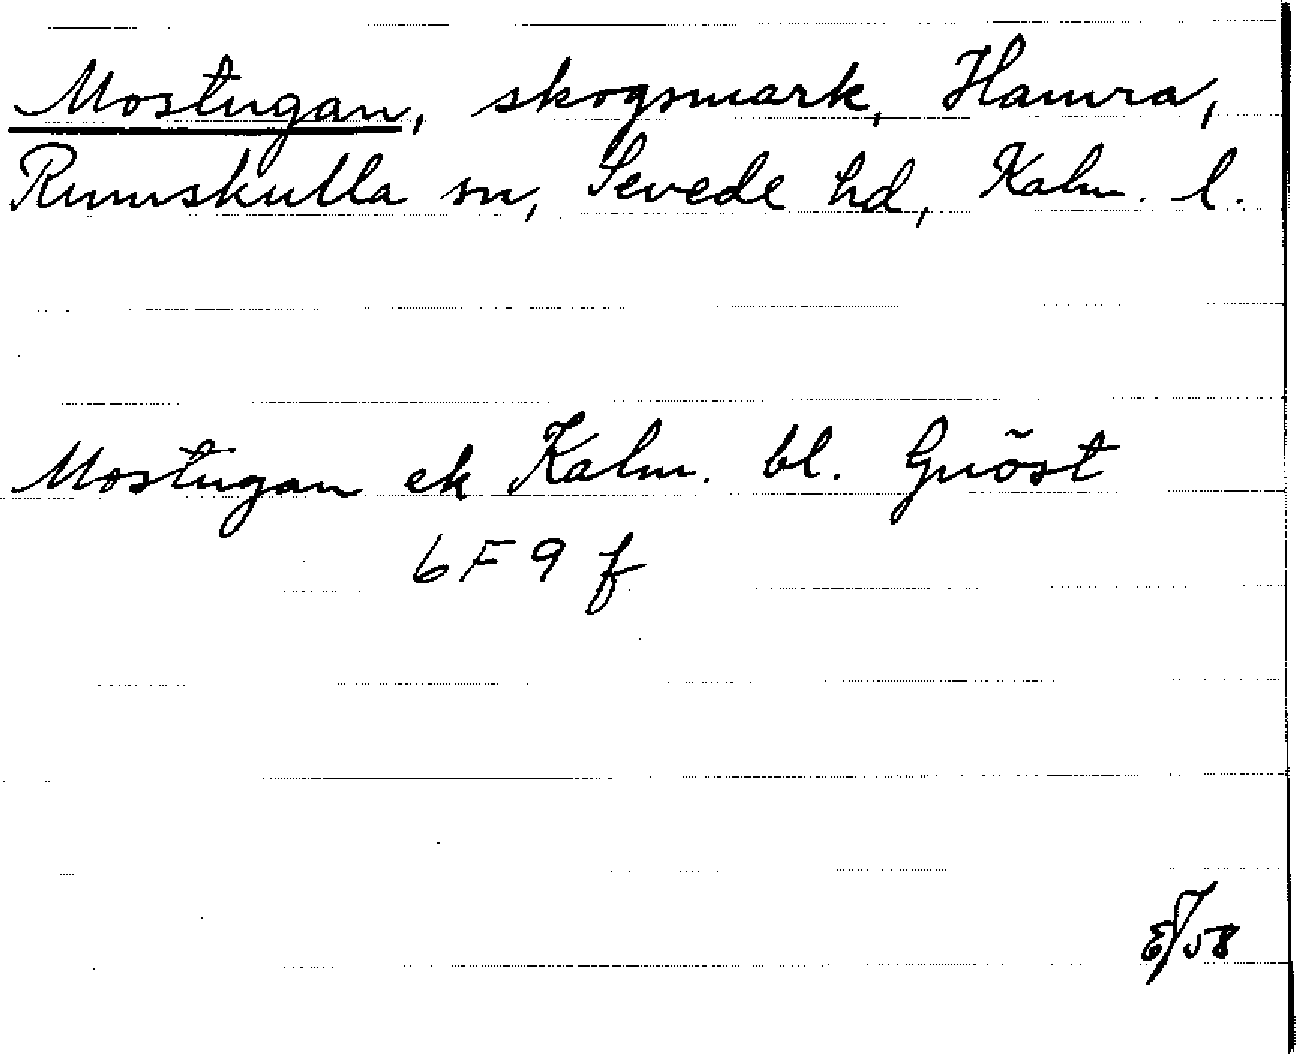 Mostugan, skogsmark, Hamra,
Rumskulla sn, Sevede hd, Kalm. l.
Mostugan ek Kalm. bl. Gnöst
6F9f